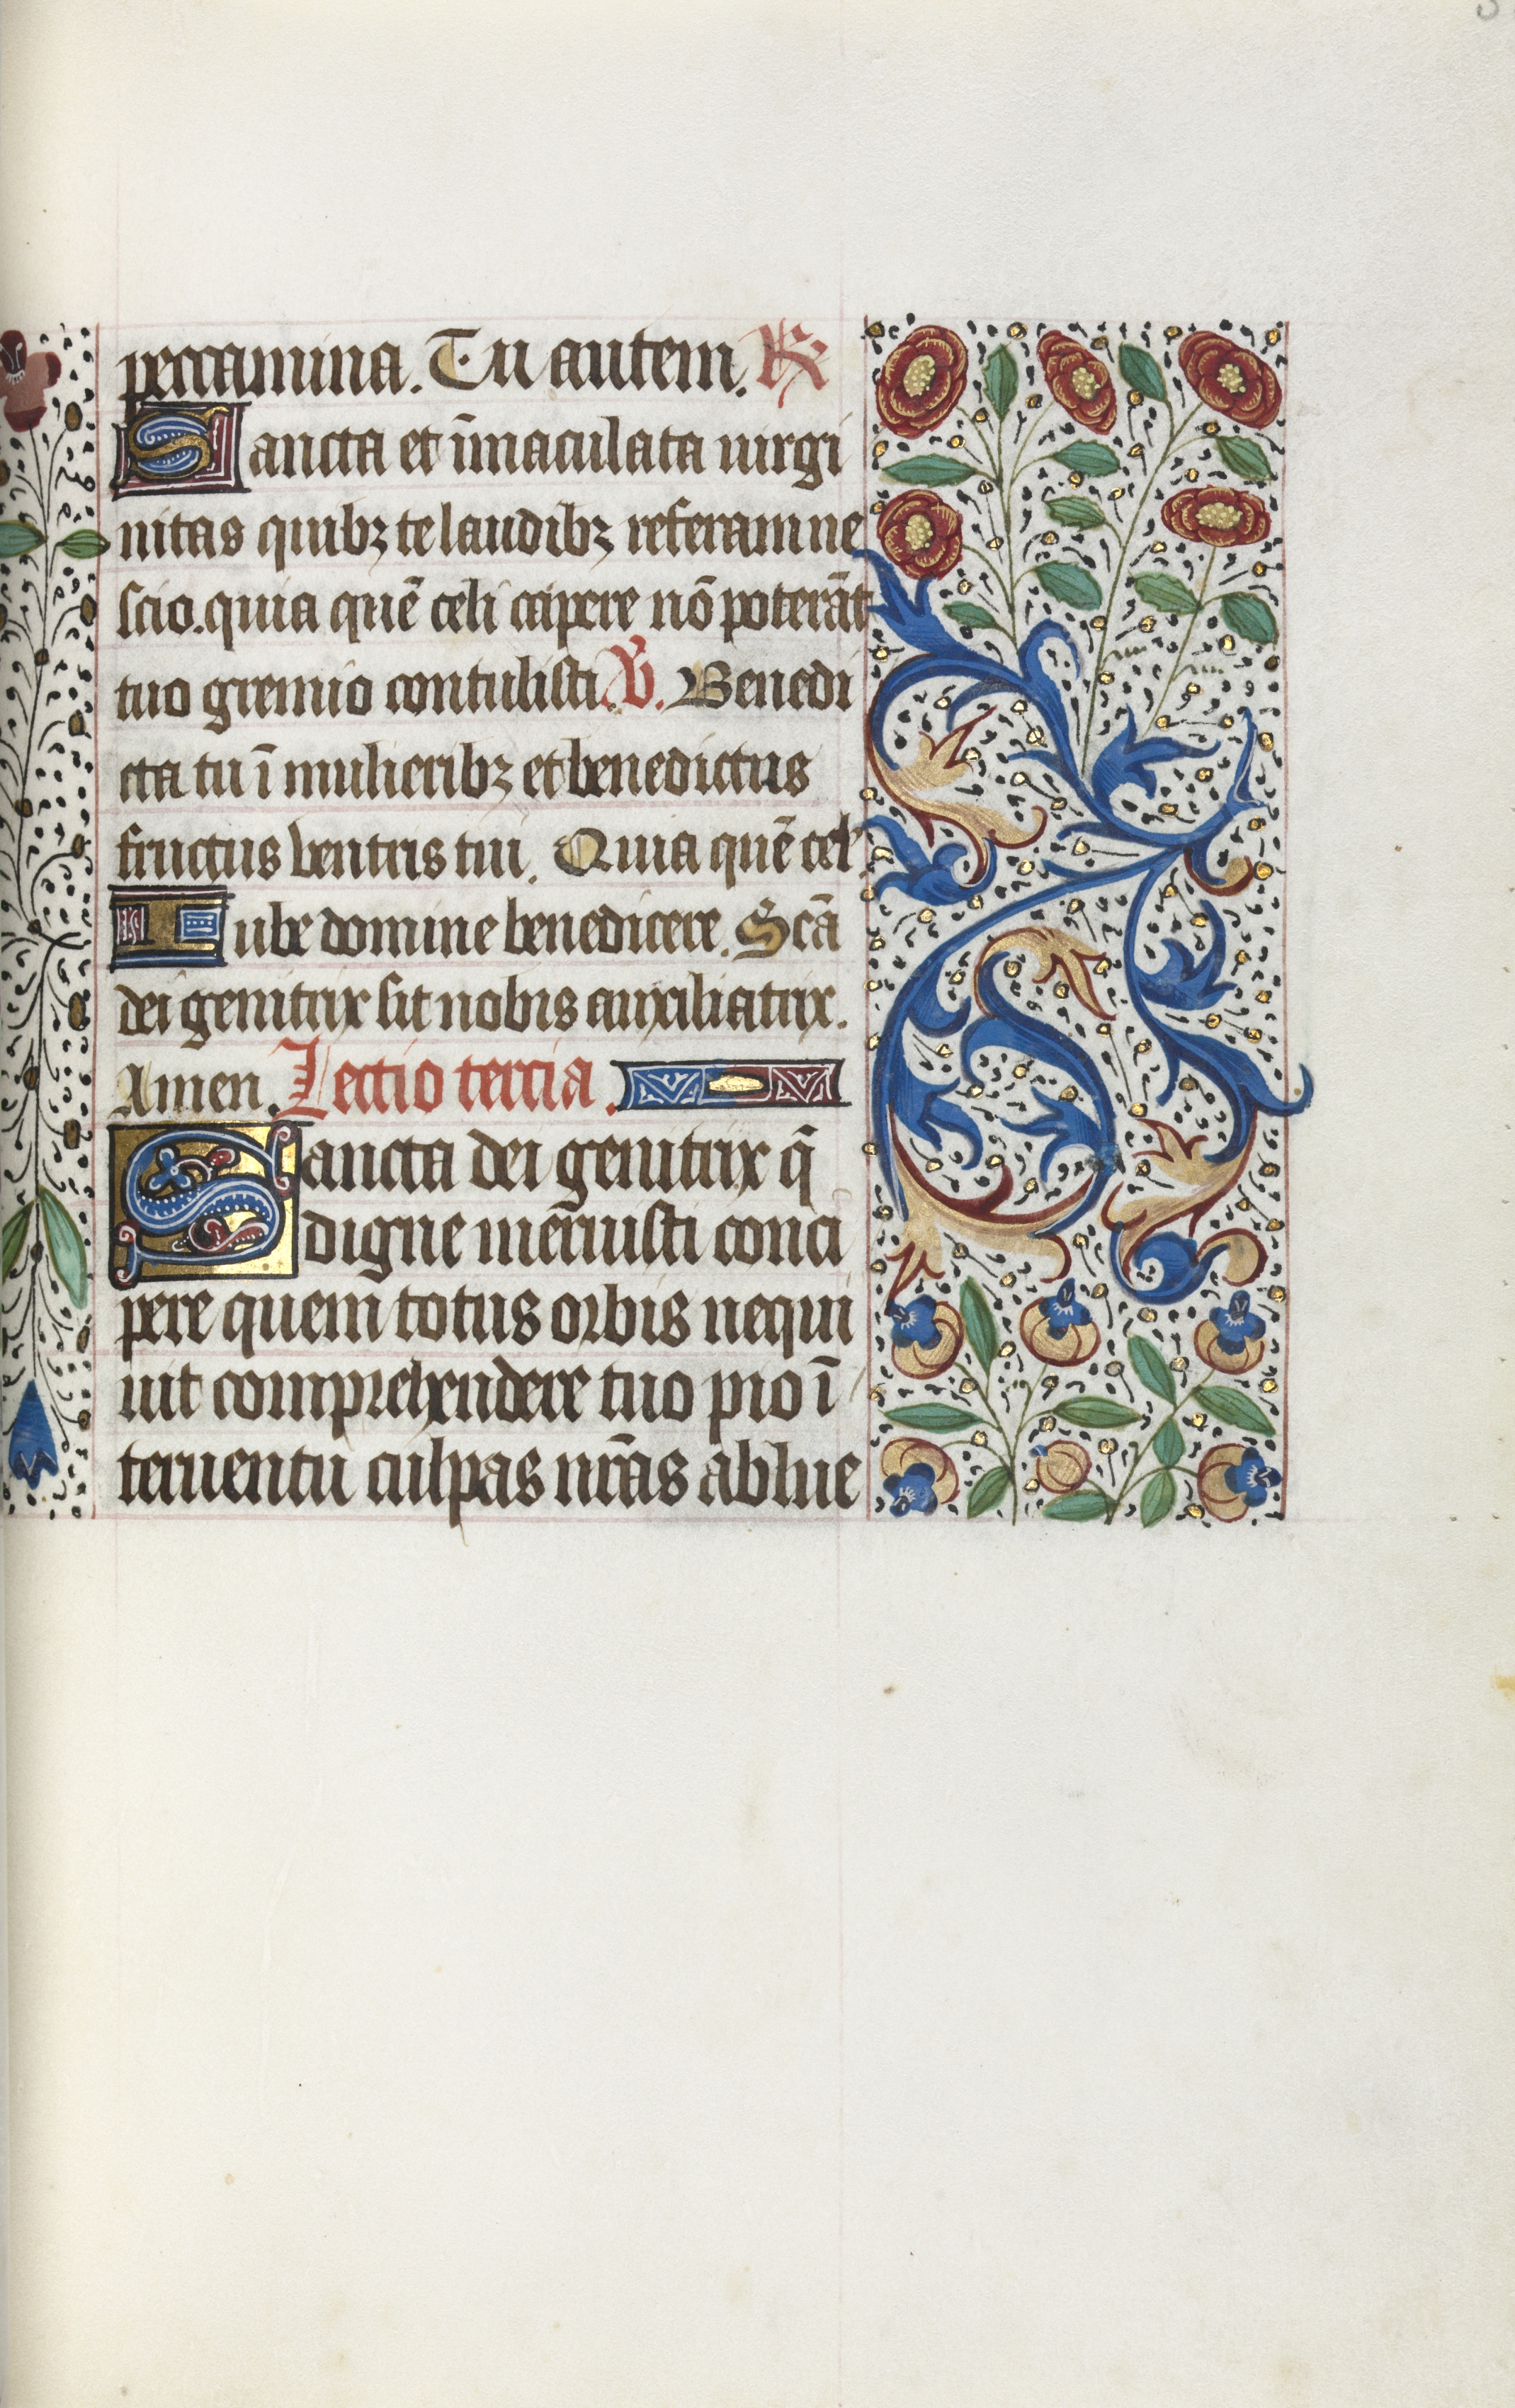 peccamina. Tu autem. ℟
Sancta et īmaculata uirgi
nitas quibꝫ te laudibꝫ referam ne
scio. quia quē celi capere nō poterāt
tuo gremio contulisti. ℣. Benedi
cta tu ī mulieribꝫ et benedictus
fructus ventris tui. Quia quē cel'
Iube domine benedicere. Scā
dei genitrix sit nobis auxiliatrix.
Amen. Lectio tercia.
Sancta dei genitrix q̄
digne meruisti conci
pere quem totus orbis nequi
uit comprehendere tuo pio ī
teruentu culpas nr̄as ablue